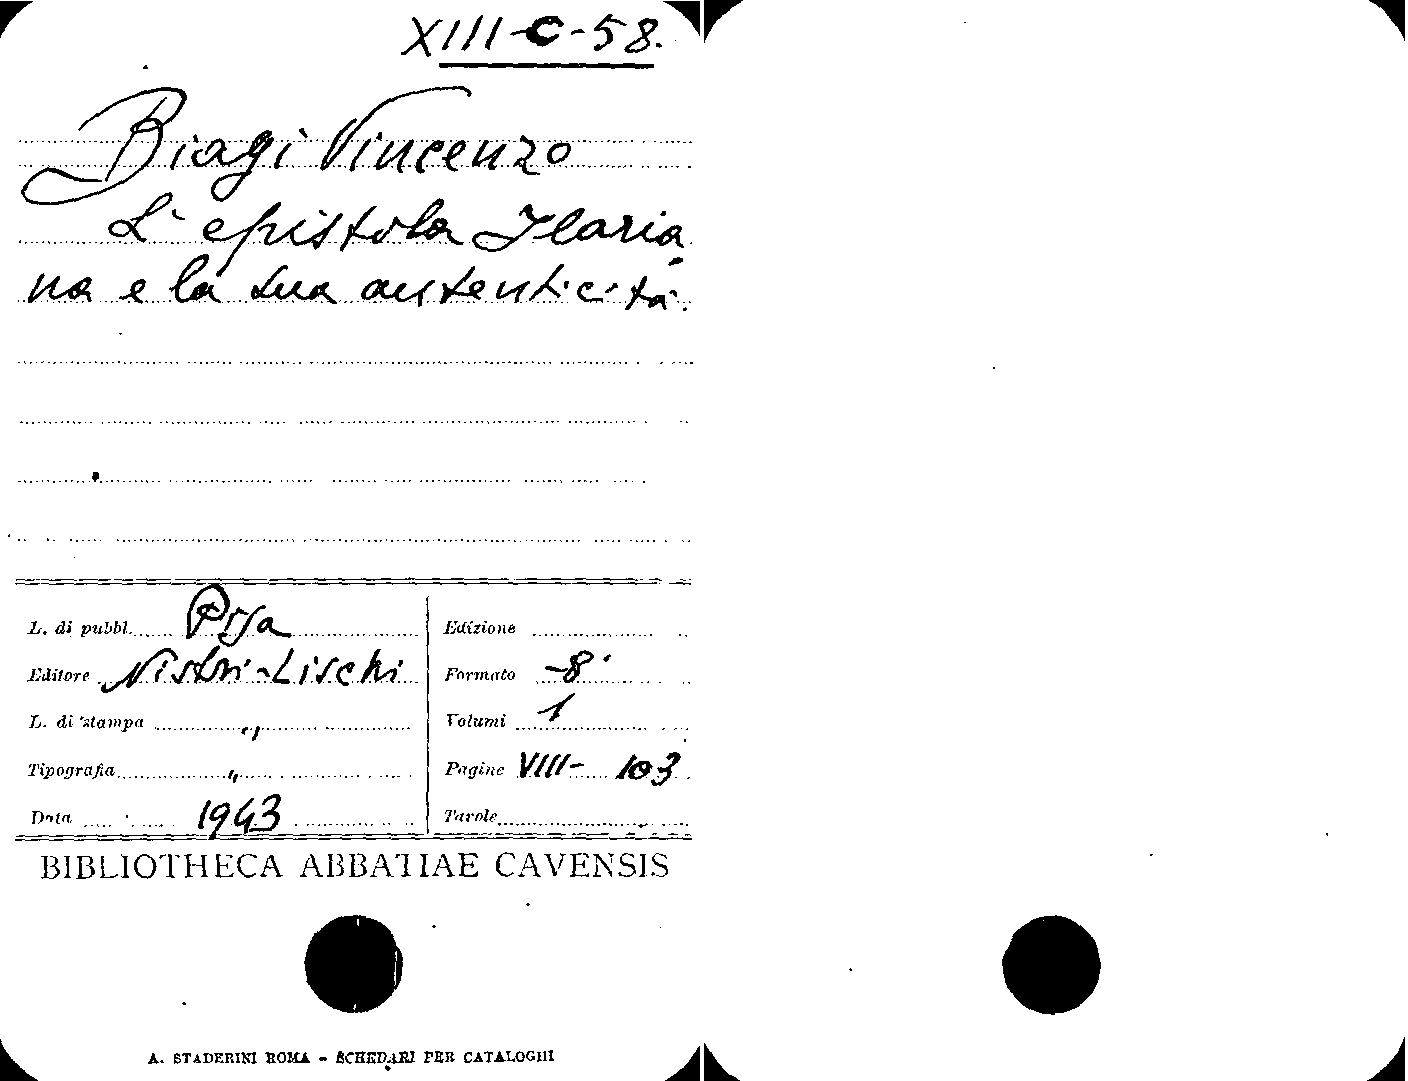 XIII-C-58.
Biagi Vincenzo
L'epistola Ilaria
na e la sua autenticità.
L. di pubbl. Pisa
Editore Nistri-Lischi
L. di stampa "
Tipografia "
Data 1943
Edizione
Formato -8°
Volumi 1
Pagine VIII- 103
Tavole
BIBLIOTHECA ABBATIAE CAVENSIS
A. STADERINI ROMA - SCHEDARI PER CATALOGHI